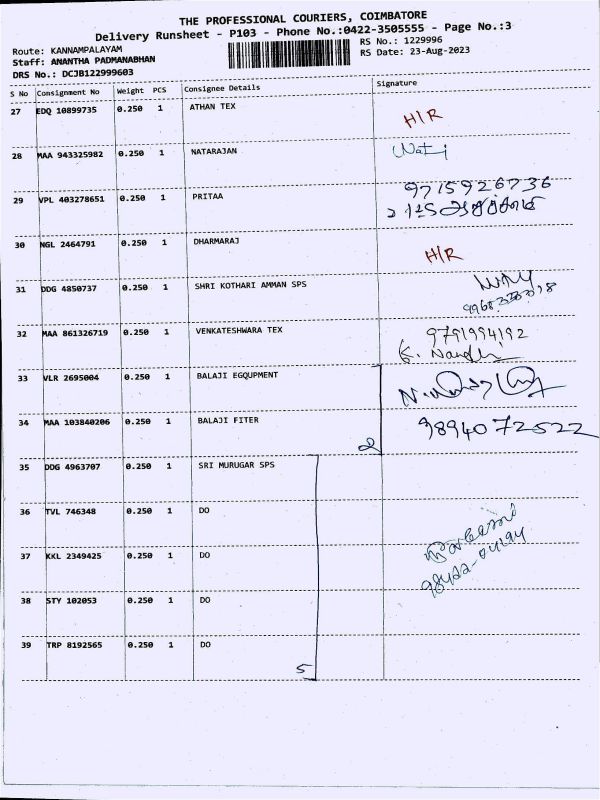 THE PROFESSIONAL COURIERS, COIMBATORE
Delivery Runsheet - P103 - Phone No.:0422-3505555 - Page No.:3
Route: KANNAMPALAYAM
RS No.: 1229996
Staff: ANANTHA PADMANABHAN
RS Date: 23-Aug-2023
DRS No.: DCJB122999603
S No Consignment No Weight PCS Consignee Details Signature
27 EDQ 10899735 0.250 1 ATHAN TEX
H/R
28 MAA 943325982 0.250 1 NATARAJAN
29 VPL 403278651 0.250 1 PRITAA
9715926736
30 NGL 2464791 0.250 1 DHARMARAJ
H/R
31 DDG 4850737 0.250 1 SHRI KOTHARI AMMAN SPS
32 MAA 861326719 0.250 1 VENKATESHWARA TEX
9791994192
K. Nandhi
33 VLR 2695004 0.250 1 BALAJI EGQUPMENT
34 MAA 103840206 0.250 1 BALAJI FITER
9894072522
2
35 DDG 4963707 0.250 1 SRI MURUGAR SPS
36 TVL 746348 0.250 1 DO
37 KKL 2349425 0.250 1 DO
38 STY 102053 0.250 1 DO
39 TRP 8192565 0.250 1 DO
5